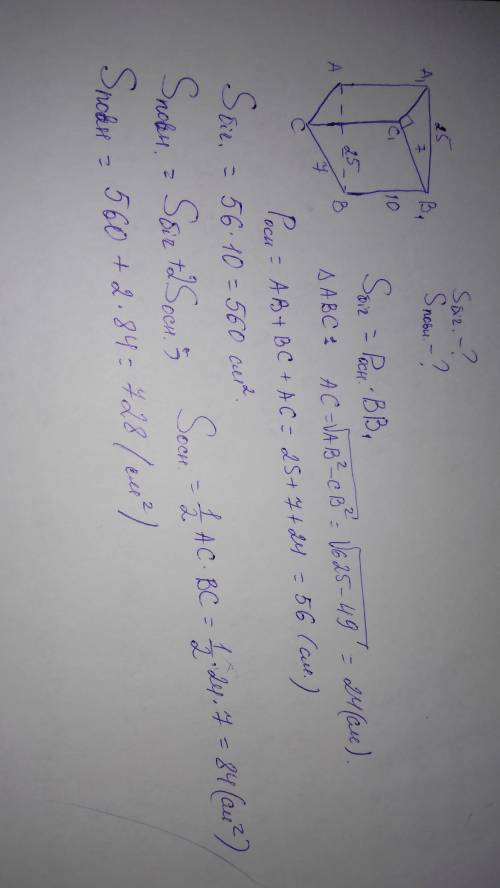 Sбіг. - ?
Sповн. - ?
A
A₁
C
C₁
B
B₁
25
7
25
7
10
Sбіг = Pосн · BB₁
ΔABC: AC = √AB² - CB² = √625 - 49 = 24 (см).
Pосн = AB + BC + AC = 25 + 7 + 24 = 56 (см.)
Sбіг. = 56 · 10 = 560 см².
Sповн. = Sбіг + 2Sосн. ; Sосн = 1/2 AC · BC = 1/2 · 24 · 7 = 84 (см²)
Sповн = 560 + 2 · 84 = 728 (см²)